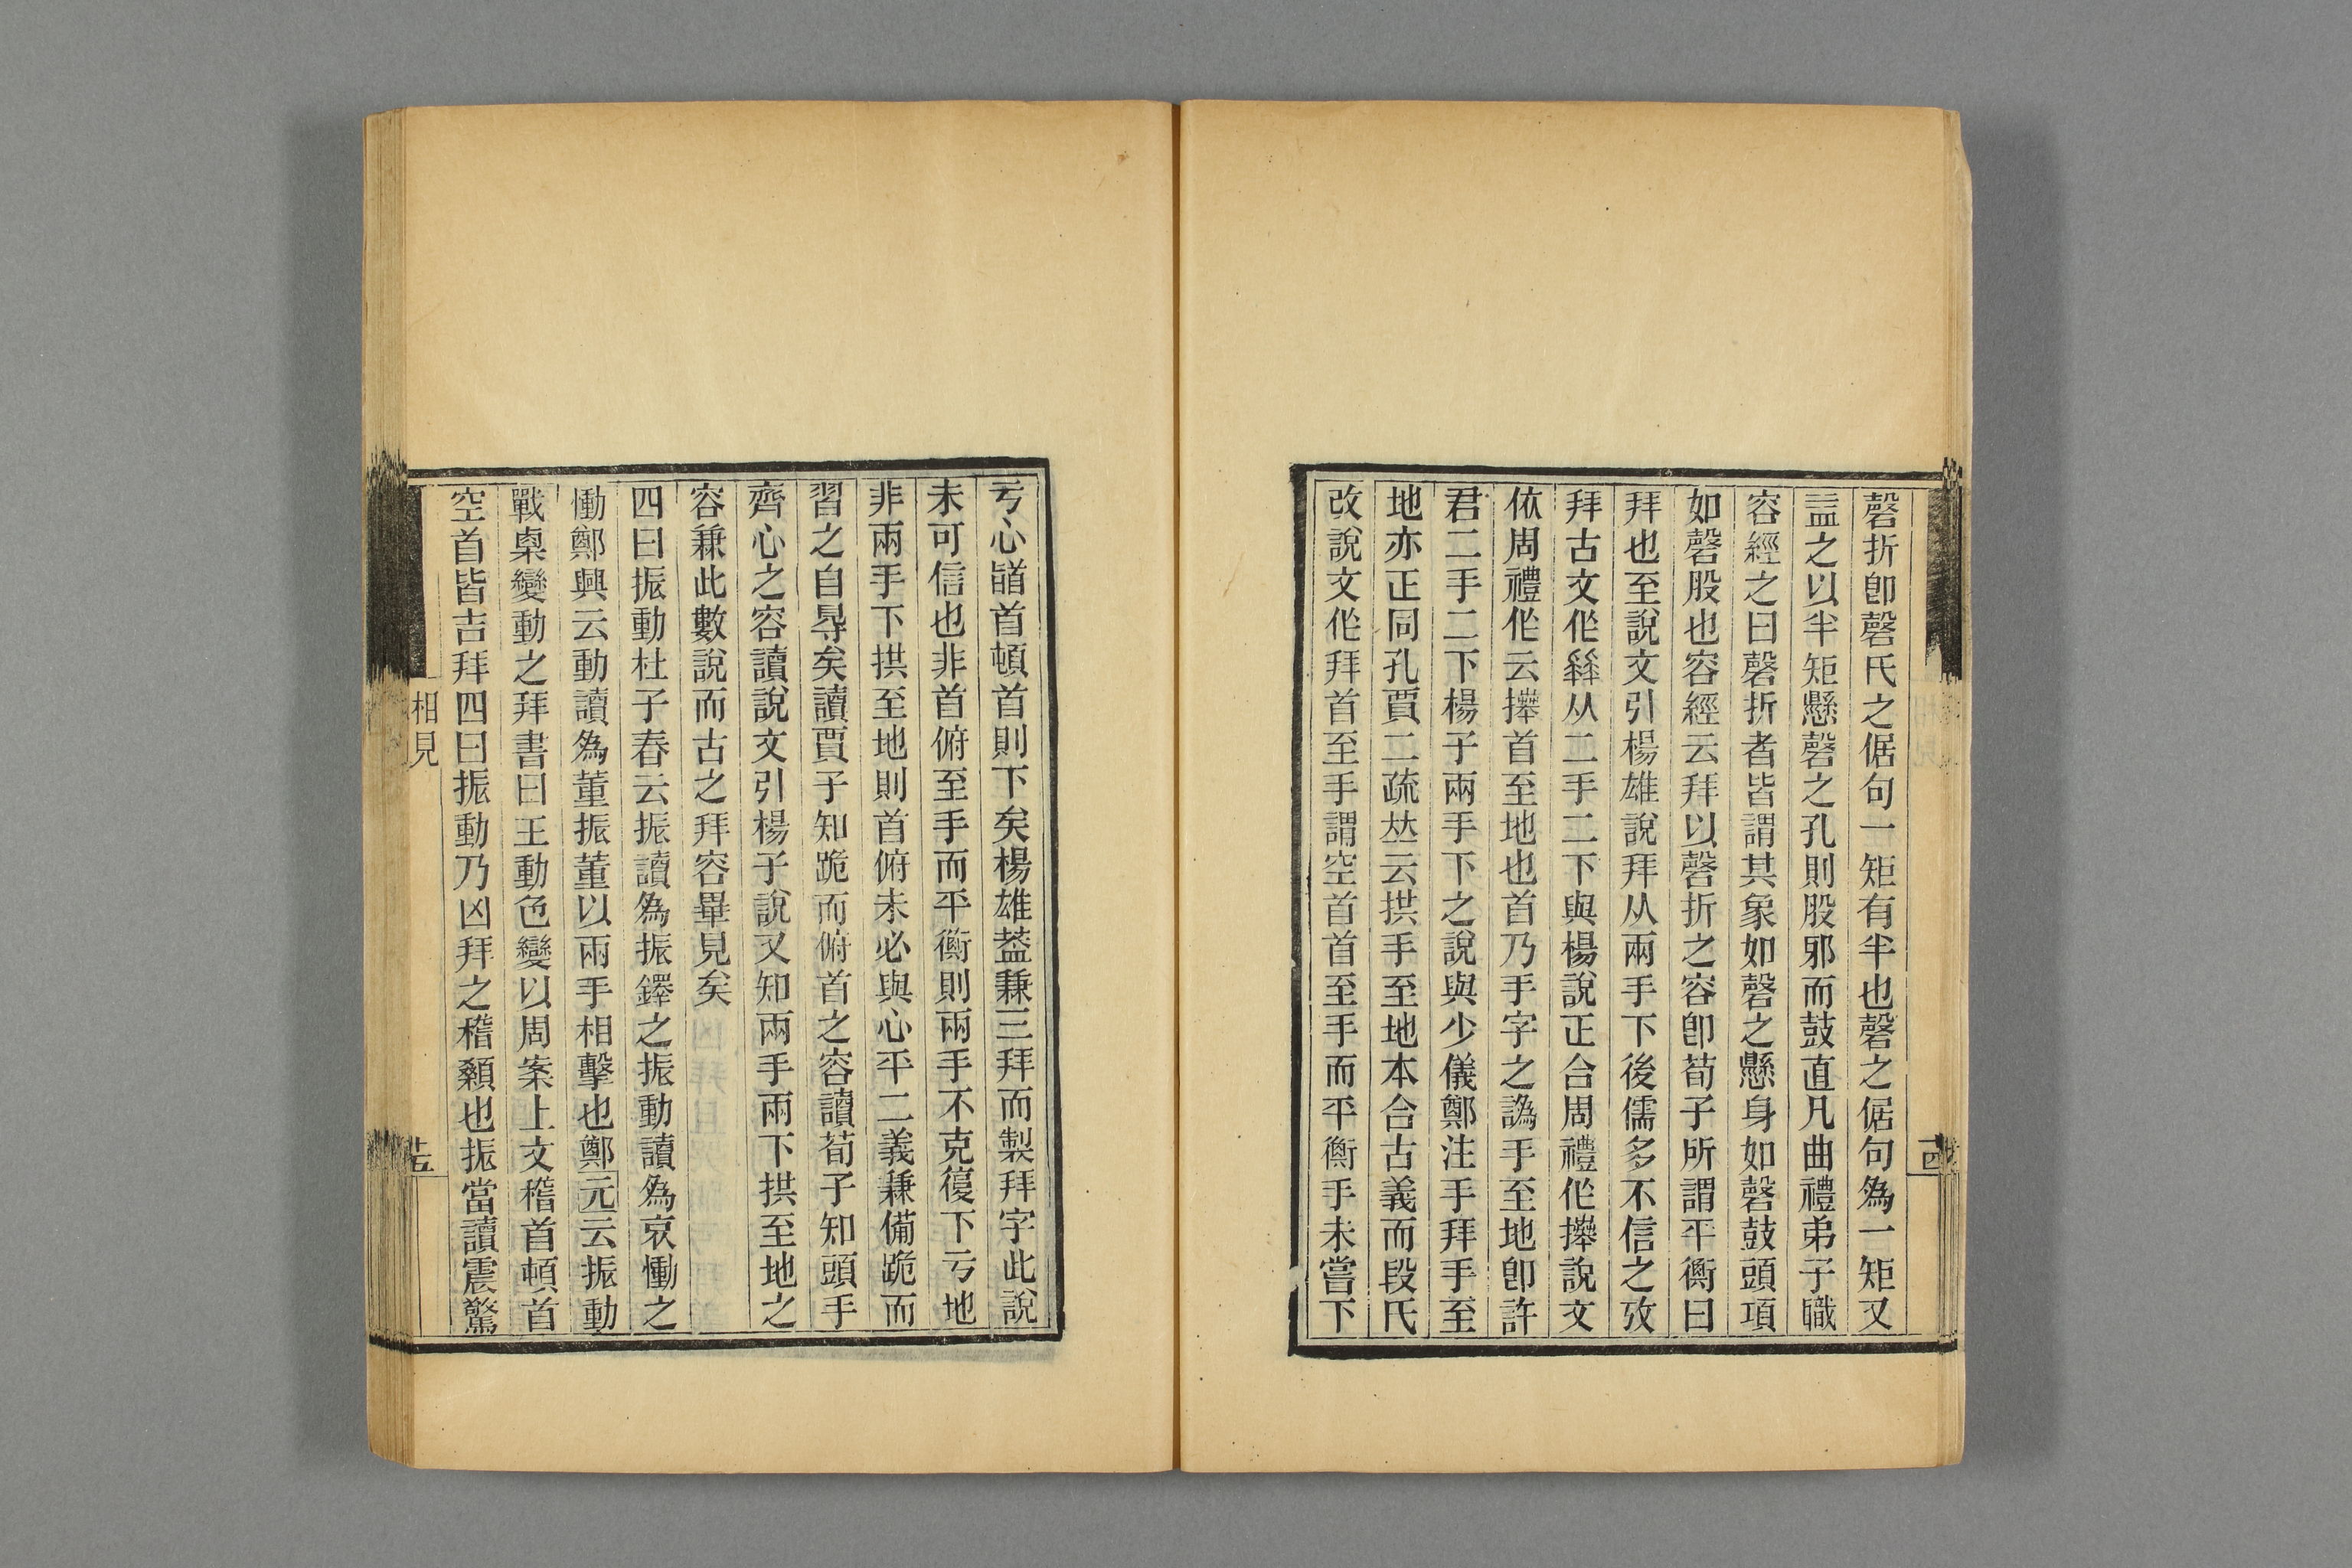 磬折卽磬氏之倨句一矩有半也磬之倨句爲一矩又
盐之以半矩懸磬之孔則股邪而鼓直凡曲禮弟子職
容經之曰磬折者皆謂其象如磬之懸身如磬鼓頭項
如磬股也容經云拜以磬折之容卽荀子所謂平衡曰
拜也至說文引楊雄說拜从兩手下後儒多不信之攷
拜古文作𢫶从二手二下與楊說正合周禮作㩺說文
依周禮作云㩺首至地也首乃手字之譌手至地卽許
君二手二下楊子兩手下之說與少儀鄭注手拜手至
地亦正同孔賈二疏竝云拱手至地本合古義而段氏
改說文作拜首至手謂空首首至手而平衡手未嘗下
亏心䭫首頓首則下矣楊雄葢兼三拜而製拜字此說
未可信也非首俯至手而平衡則兩手不克復下亏地
非兩手下拱至地則首俯未必與心平二義兼備跪而
習之自㝵矣讀賈子知跪而俯首之容讀荀子知頭手
齊心之容讀說文引楊子說又知兩手兩下拱至地之
容兼此數說而古之拜容畢見矣
四曰振動杜子春云振讀爲振鐸之振動讀爲哀慟之
慟鄭興云動讀爲董振董以兩手相擊也鄭元云振動
戰㮚變動之拜書曰王動色變以周案上文䅲首頓首
空首皆吉拜四曰振動乃凶拜之䅲顙也振當讀震驚
相見
十五